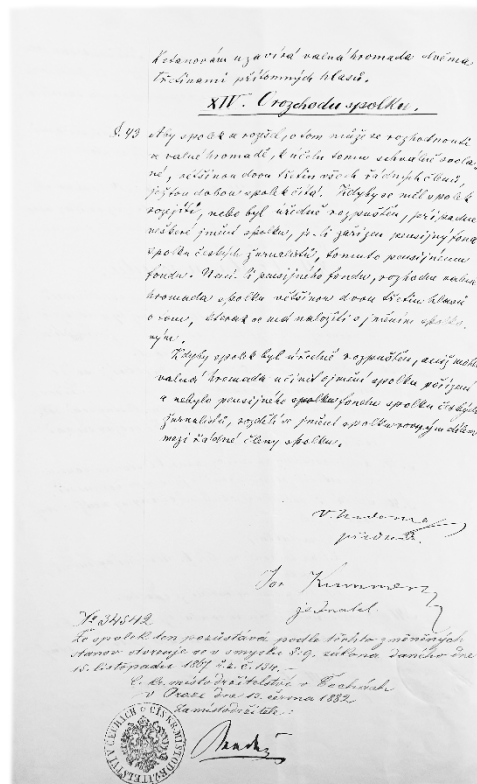 Ustanovám uzavírá valná hromada dvěma
třetinami přítomných hlasů.
XIV. O rozchodu spolku.
§. 43 Aby spolek se rozešel, o tom může se rozhodnouti
ve valné hromadě, k účelu tomu schválně svola-
né, většinou dvou třetin všech řádných členů,
jež tou dobou spolek čítá. Kdyby se měl spolek
rozejíti, nebo byl úředně rozpuštěn, připadne
veškeré jmění spolku, je-li zařízen pensijný fond
spolku českých žurnalistů, tomuto pensijnímu
fondu. Není-li pensijného fondu, rozhodne valná
hromada spolku většinou dvou třetin hlasů
o tom, kterak se má naložiti s jměním spolko-
vým.
Kdyby spolek byl úředně rozpuštěn, aniž mohla
valná hromada učiniti o jmění spolku pořízení
a nebylo pensijného fondu spolku českých
žurnalistů, rozdělí se jmění spolku rovným dílem
mezi řádné členy spolku.
předseda.
Jos
jednatel
No 34542
Že spolek ten pozůstává podle těchto změněných
stanov dotvrzuje se ve smyslu §. 9. zákona daného dne
15. listopadu 1867 č. ř. z. 134. —
C. kr. místodržitelství v Čechách
v Praze dne 13. června 1882
Za místodržitele:
CÍS. KR. MÍSTODRŽITELSTVÍ V ČECHÁCH